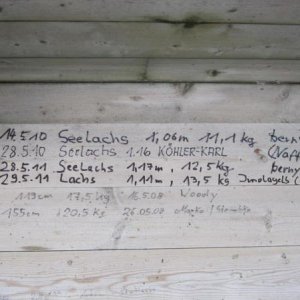 14.5.10 Seelachs 1,06m 11,1 kg bern
28.5.10 Seelachs 1.16 KÖHLER-KARL
28.5.11 Seelachs 1,17m, 12,5kg berny
29.5.11 Lachs 1,11m, 13,5 kg
119cm 17,5 kg 16.5.08 Woody
155cm 20,5 kg 26.05.08 Marko